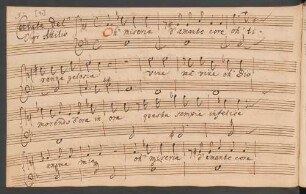 Del
Oh' miseria d'amante core oh' ti-
ranna gelosia viva mà viva oh' Dio
morendo d'ora in ora questa sempre infelice
oh' miseria d'amante core